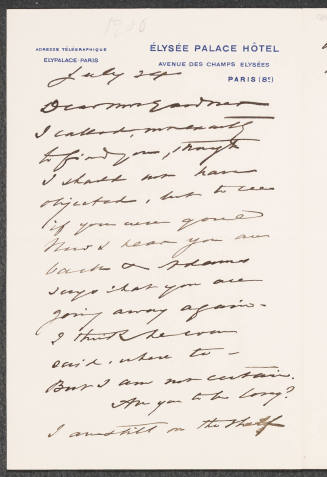 1906
ADRESSE TÉLÉGRAPHIQUE
ELYPALACE-PARIS
ÉLYSÉE PALACE HÔTEL
AVENUE DES CHAMPS ELYSÉES
PARIS (8E)
July 24
Dear Mrs Gardner
I called, not exactly
to find you, though
I should not have
objected, but to see
if you were gone
Now I hear you are
back & Adams
says that you are
going away again.
I think he
said, where to –
But I am not certain.
Are you to be long?
I am still on the shelf